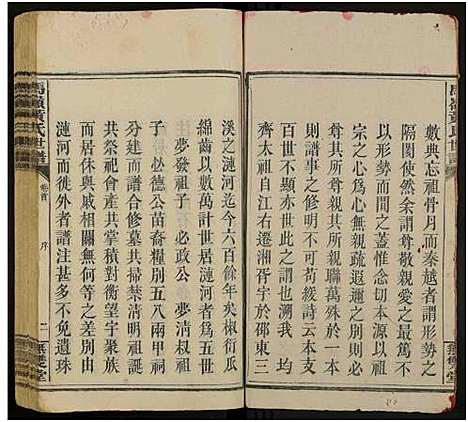 馬嶺黃氏世譜
數典忘祖骨月而秦越者謂形勢之
隔閡使然余謂尊敬親愛之最篤不
以形勢而間之蓋惟念切本源以祖
宗之心為心無親疏遐邇之別則必
尊其所尊親其所親聯萬殊於一本
則譜事之修明不可苟緩詩云本支
百世不顯亦世此之謂也溯我 均
齊太祖自江右遷湘胥宇於邵東三
無雙堂
溪之漣河迄今六百餘年矣椒衍瓜
綿齒以幾萬計世居漣河者為五世
夢發祖子 必政公 夢清叔祖
子 必德公苗裔糧別五八兩甲祠
分建而譜合修墓禁清明祖誕
共祭祀會產共掌積對衡望宇喪
也戚相關無何等之差別由
漣河而徙外者譜注甚多不無遺珠
馬嶺黃氏世譜
卷首
序
二
無雙堂